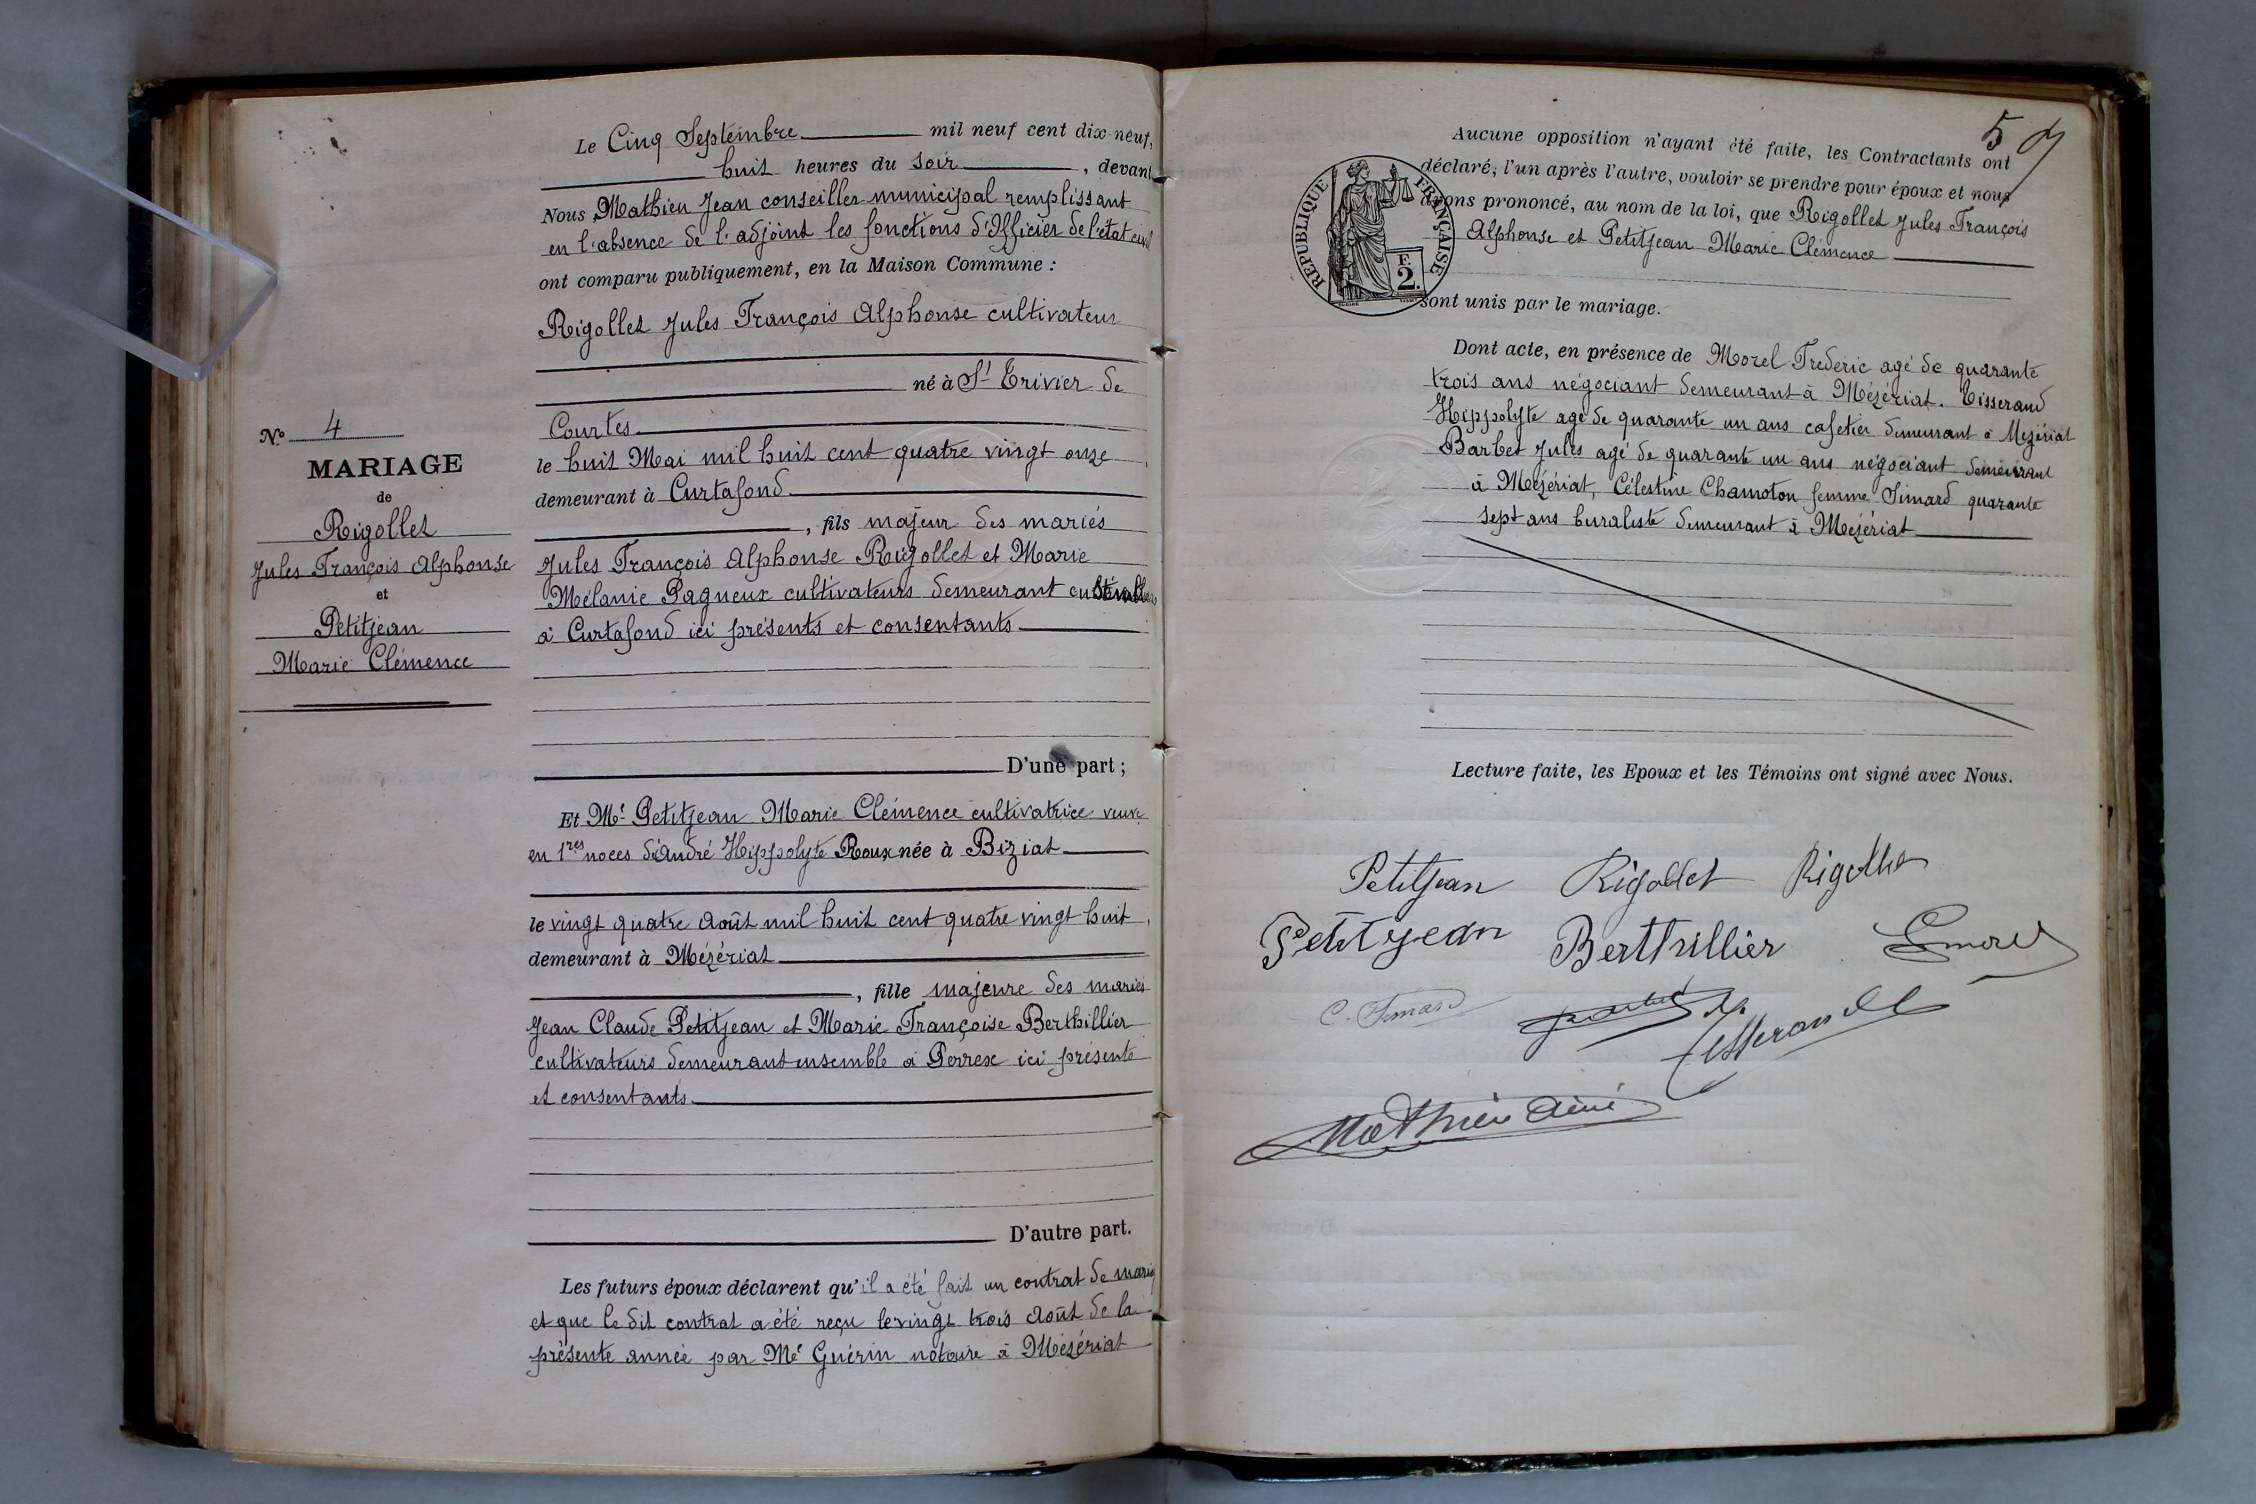 Le Cinq Septembre mil neuf cent dix-neuf,
huit heures du soir, devant
Nous Mathieu Jean conseiller municipal remplissant
en l'absence de l'adjoint les fonctions d'Officier de l'état civil
ont comparu publiquement, en la Maison Commune :
Rigollet Jules François Alphonse cultivateur
né à St Trivier de
Courtes
le huit Mai mil huit cent quatre vingt onze
demeurant à Curtafond
, fils majeur des mariés
Jules François Alphonse Rigollet et Marie
Mélanie Pagneux cultivateurs demeurant
à Curtafond ici présents et consentants
D'une part ;
Et Me Petitjean Marie Clémence cultivatrice veuve
en 1res noces d'André Hippolyte Roux née à Biziat
le vingt quatre Août mil huit cent quatre vingt huit
demeurant à Mézériat
, fille majeure des mariés
Jean Claude Petitjean et Marie Françoise Berthillier
cultivateurs demeurant ensemble à Perrex ici présents
et consentants
D'autre part.
Les futurs époux déclarent qu'il a été fait un contrat de mariag
et que le dit contrat a été reçu le vingt trois Août de la
présente année par Me Guérin notaire à Mézériat
No 4
MARIAGE
de
Rigollet
Jules François Alphonse
et
Petitjean
Marie Clémence
5
Aucune opposition n'ayant été faite, les Contractants ont
déclaré, l'un après l'autre, vouloir se prendre pour époux et nous
avons prononcé, au nom de la loi, que Rigollet Jules François
Alphonse et Petitjean Marie Clémence
sont unis par le mariage.
RÉPUBLIQUE FRANÇAISE
F.
2.
Dont acte, en présence de Morel Frederic agé de quarante
trois ans négociant demeurant à Mézériat. Tisserand
Hippolyte agé de quarante un ans cafetier demeurant à Mezériat
Barbet Jules agé de quarante un ans négociant demeurant
à Mézériat, Célestine Chamoton femme Simard quarante
sept ans buraliste demeurant à Mézériat
Lecture faite, les Epoux et les Témoins ont signé avec Nous.
Petitjean Rigollet Rigollet
Petitjean Berthillier
C. Simard
Tisserand
Mathieu Aimé